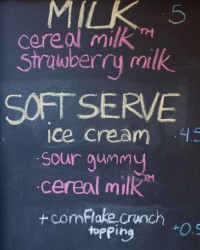 MILK .5
cereal milk™
strawberry milk
SOFT SERVE
ice cream .4.5
·sour gummy
·cereal milk™
+cornflake crunch
topping +0.5